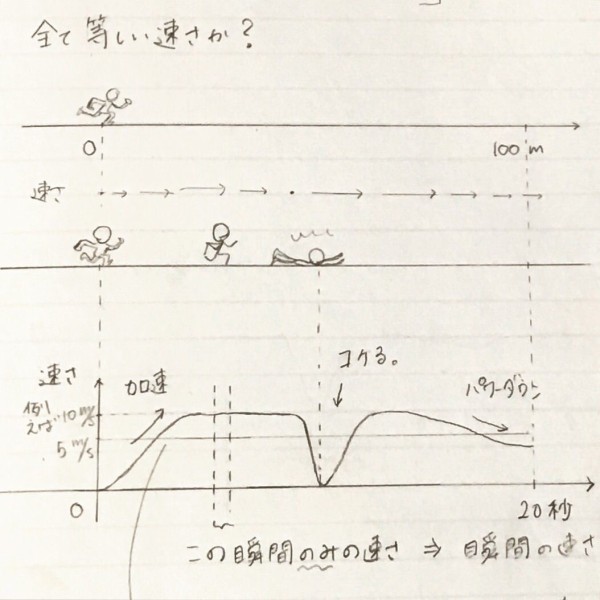 全て等しい速さか?
0
100m
速さ
コケる。
速さ
加速
パワーダウン
例えば10m/s
5m/s
0
20秒
この瞬間のみの速さ ⇒ 瞬間の速さ